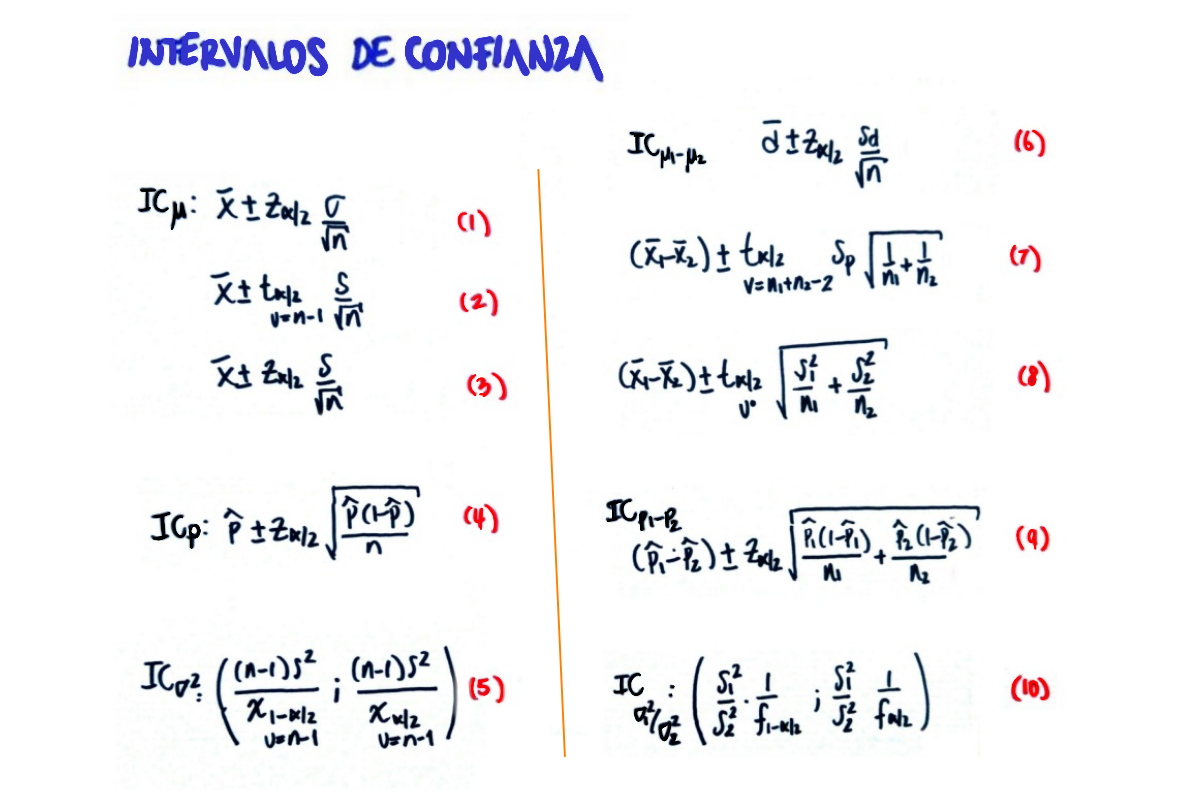 INTERVALOS DE CONFIANZA
IC_μ: x̄ ± z_{α/2} σ/√n (1)
x̄ ± t_{α/2} s/√n (2)
v=n-1
x̄ ± z_{α/2} s/√n (3)
IC_p: p̂ ± z_{α/2} √(p̂(1-p̂)/n) (4)
IC_{σ²}: ((n-1)s²/χ_{1-α/2} ; (n-1)s²/χ_{α/2}) (5)
v=n-1 v=n-1
IC_{μ₁-μ₂} d̄ ± z_{α/2} sd/√n (6)
(x̄₁-x̄₂) ± t_{α/2} Sp √(1/n₁ + 1/n₂) (7)
v=n₁+n₂-2
(x̄₁-x̄₂) ± t_{α/2} √(s₁²/n₁ + s₂²/n₂) (8)
v°
IC_{p₁-p₂}
(p̂₁-p̂₂) ± z_{α/2} √(p̂₁(1-p̂₁)/n₁ + p̂₂(1-p̂₂)/n₂) (9)
IC_{σ₁²/σ₂²}: (s₁²/s₂² · 1/f_{1-α/2} ; s₁²/s₂² 1/f_{α/2}) (10)